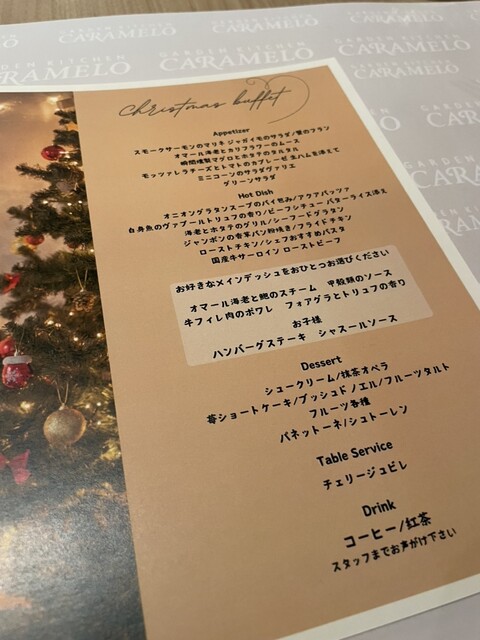 GARDEN KITCHEN
CARAMELO
GARDEN KITCHEN
CARAMELO
GARDEN KITCHEN
CARAMELO
christmas buffet
Appetizer
スモークサーモンのマリネ ジャガイモのサラダ/蟹のフラン
オマール海老とカリフラワーのムース
瞬間燻製マグロとホタテのタルタル
モッツァレラチーズとトマトのカプレーゼ 生ハムを添えて
ミニコーンのサラダヴァリエ
グリーンサラダ
Hot Dish
オニオングラタンスープのパイ包み/アクアパッツァ
白身魚のヴァプールトリュフの香り/ビーフシチュー バターライス添え
海老とホタテのグリル/シーフードグラタン
ジャンボンの香草パン粉焼き/フライドチキン
ローストチキン/シェフおすすめパスタ
国産牛サーロイン ローストビーフ
お好きなメインディッシュをおひとつお選びください
オマール海老と鮑のスチーム 甲殻類のソース
牛フィレ肉のポワレ フォアグラとトリュフの香り
お子様
ハンバーグステーキ シャスールソース
Dessert
シュークリーム/抹茶オペラ
苺ショートケーキ/ブッシュドノエル/フルーツタルト
フルーツ各種
パネットーネ/シュトーレン
Table Service
チェリージュビレ
Drink
コーヒー/紅茶
スタッフまでお声がけ下さい